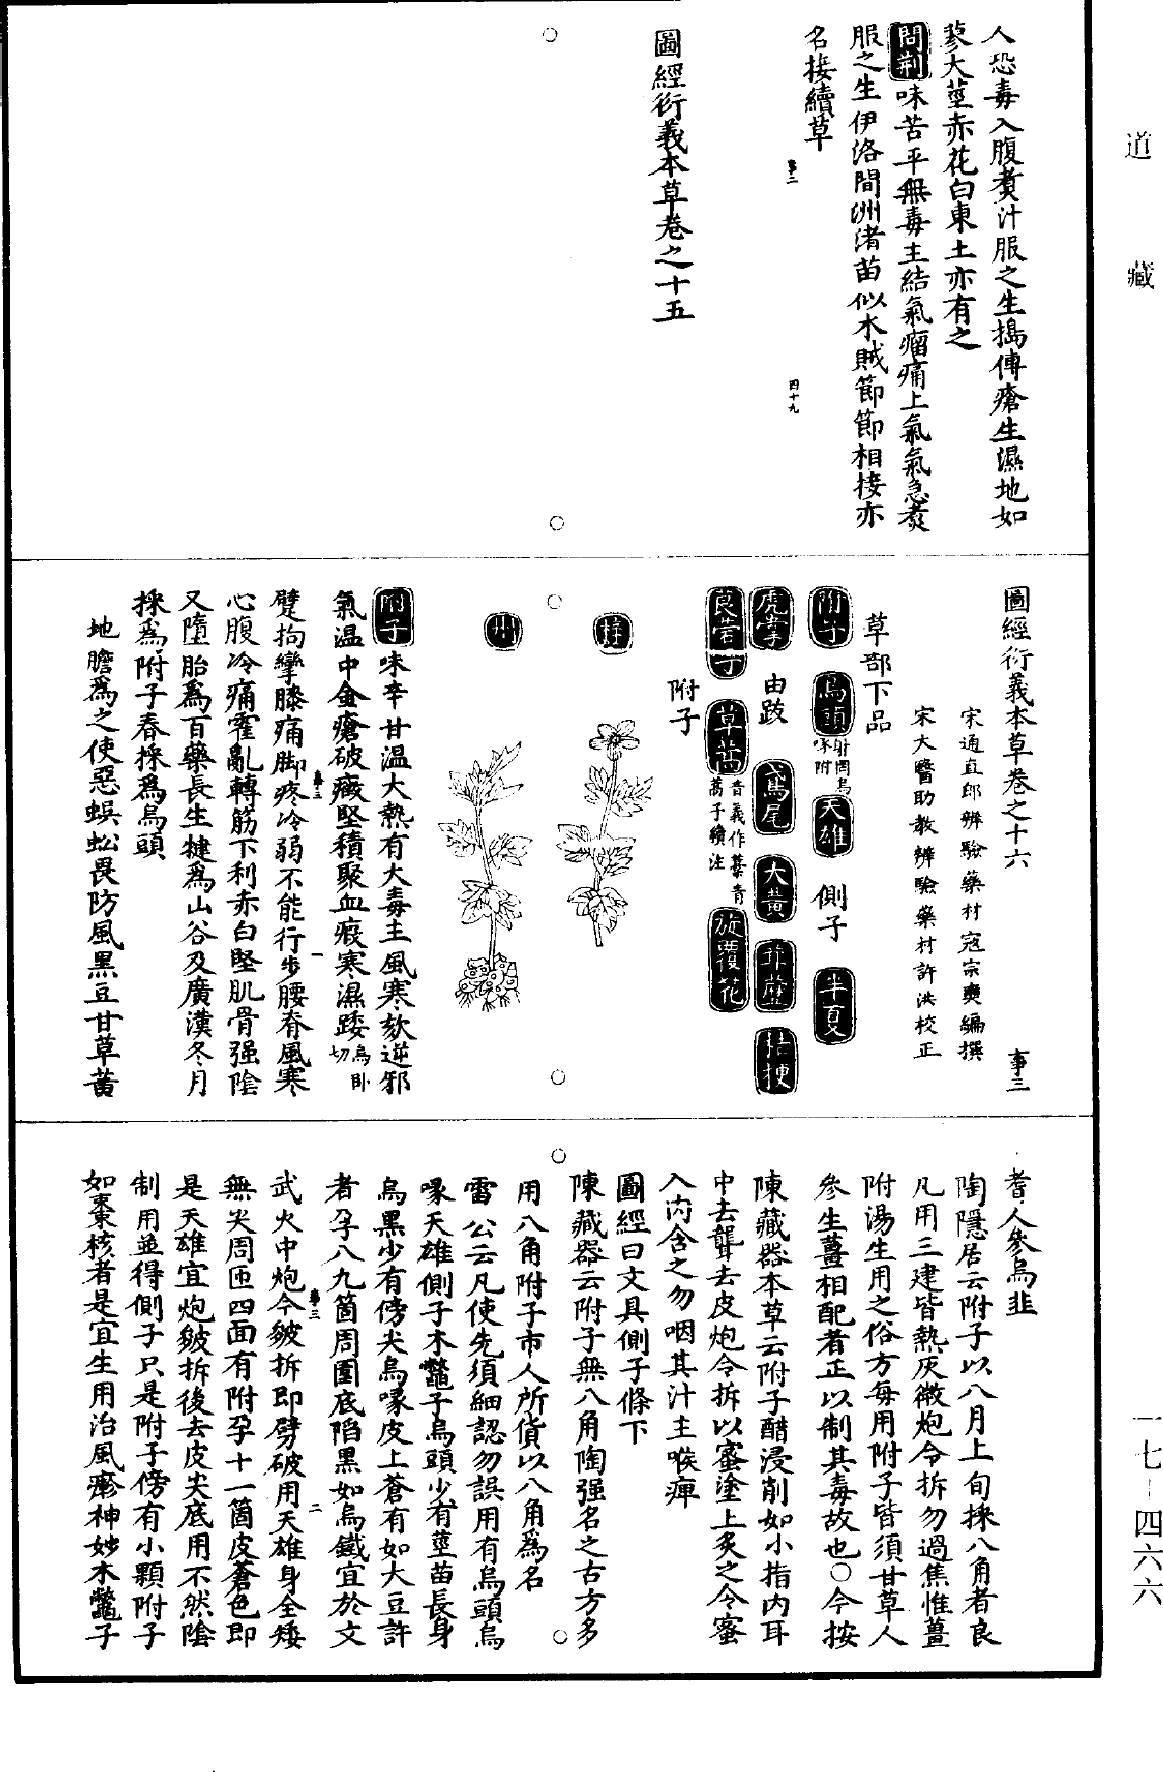 道藏
人恐毒入腹煑汁服之生搗傅瘡生濕地如
蓼大莖赤花白東土亦有之
問荆味苦平無毒主結氣瘤痛上氣氣急煑
服之生伊洛間洲渚苗似木賊節節相接亦
名接續草
事三
四十九
圖經衍義本草卷之十五
圖經衍義本草卷之十六
事三
宋通直郎辨驗藥材寇宗奭編撰
宋太醫助教辨驗藥材許洪校正
草部下品
附子
烏頭
射罔烏
喙附
天雄
側子
半夏
虎掌
由跋
鳶尾
大黃
葶藶
桔梗
莨菪子
草蒿
音義作藁青
蒿子續注
旋覆花
附子
附子味辛甘温大熱有大毒主風寒欬逆邪
氣温中金瘡破癥堅積聚血瘕寒濕踒烏卧切
躄拘攣膝痛脚疼冷弱不能行步腰脊風寒
事三
一
心腹冷痛霍亂轉筋下利赤白堅肌骨强陰
又墮胎爲百藥長生犍爲山谷及廣漢冬月
採爲附子春採爲烏頭
地膽爲之使惡蜈蚣畏防風黑豆甘草黃
耆人參烏韭
陶隱居云附子以八月上旬採八角者良
凡用三建皆熱灰微炮令拆勿過焦惟薑
附湯生用之俗方每用附子皆須甘草人
參生薑相配者正以制其毒故也○今按
陳藏器本草云附子醋浸削如小指内耳
中去聾去皮炮令拆以蜜塗上炙之令蜜
入内含之勿咽其汁主喉痺
圖經曰文具側子條下
陳藏器云附子無八角陶强名之古方多
用八角附子市人所貨以八角爲名
雷公云凡使先須細認勿誤用有烏頭烏
喙天雄側子木鱉子烏頭少有莖苗長身
烏黑少有傍尖烏喙皮上蒼有如大豆許
者孕八九箇周圍底陷黑如烏鐵宜於文
武火中炮令皴拆即劈破用天雄身全矮
事三
二
無尖周匝四面有附孕十一箇皮蒼色即
是天雄宜炮皴拆後去皮尖底用不然陰
制用並得側子只是附子傍有小顆附子
如棗核者是宜生用治風癮神妙木鱉子
一七-四六六